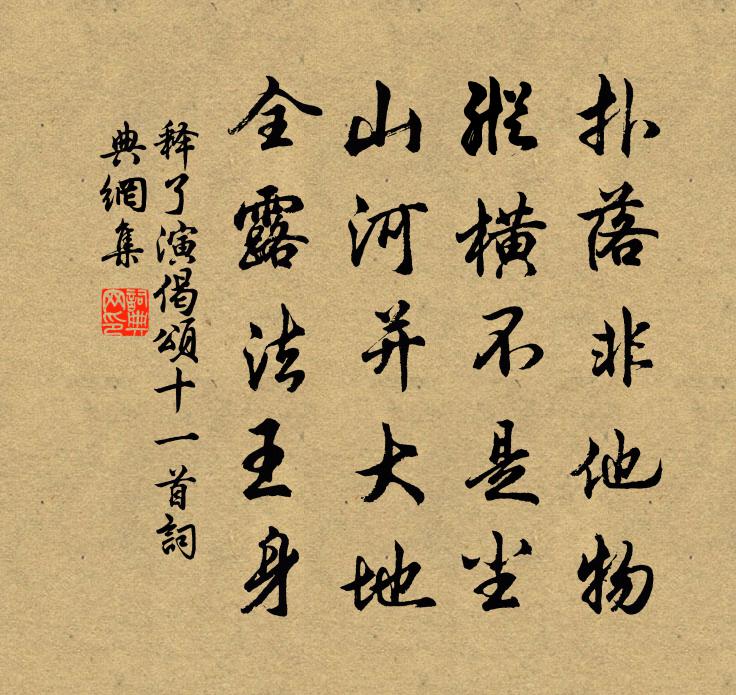 扑落非他物
縱橫不是尘
山河并大地
全露法王身
释了演偈頌十一首詞
典網集
詞典网印